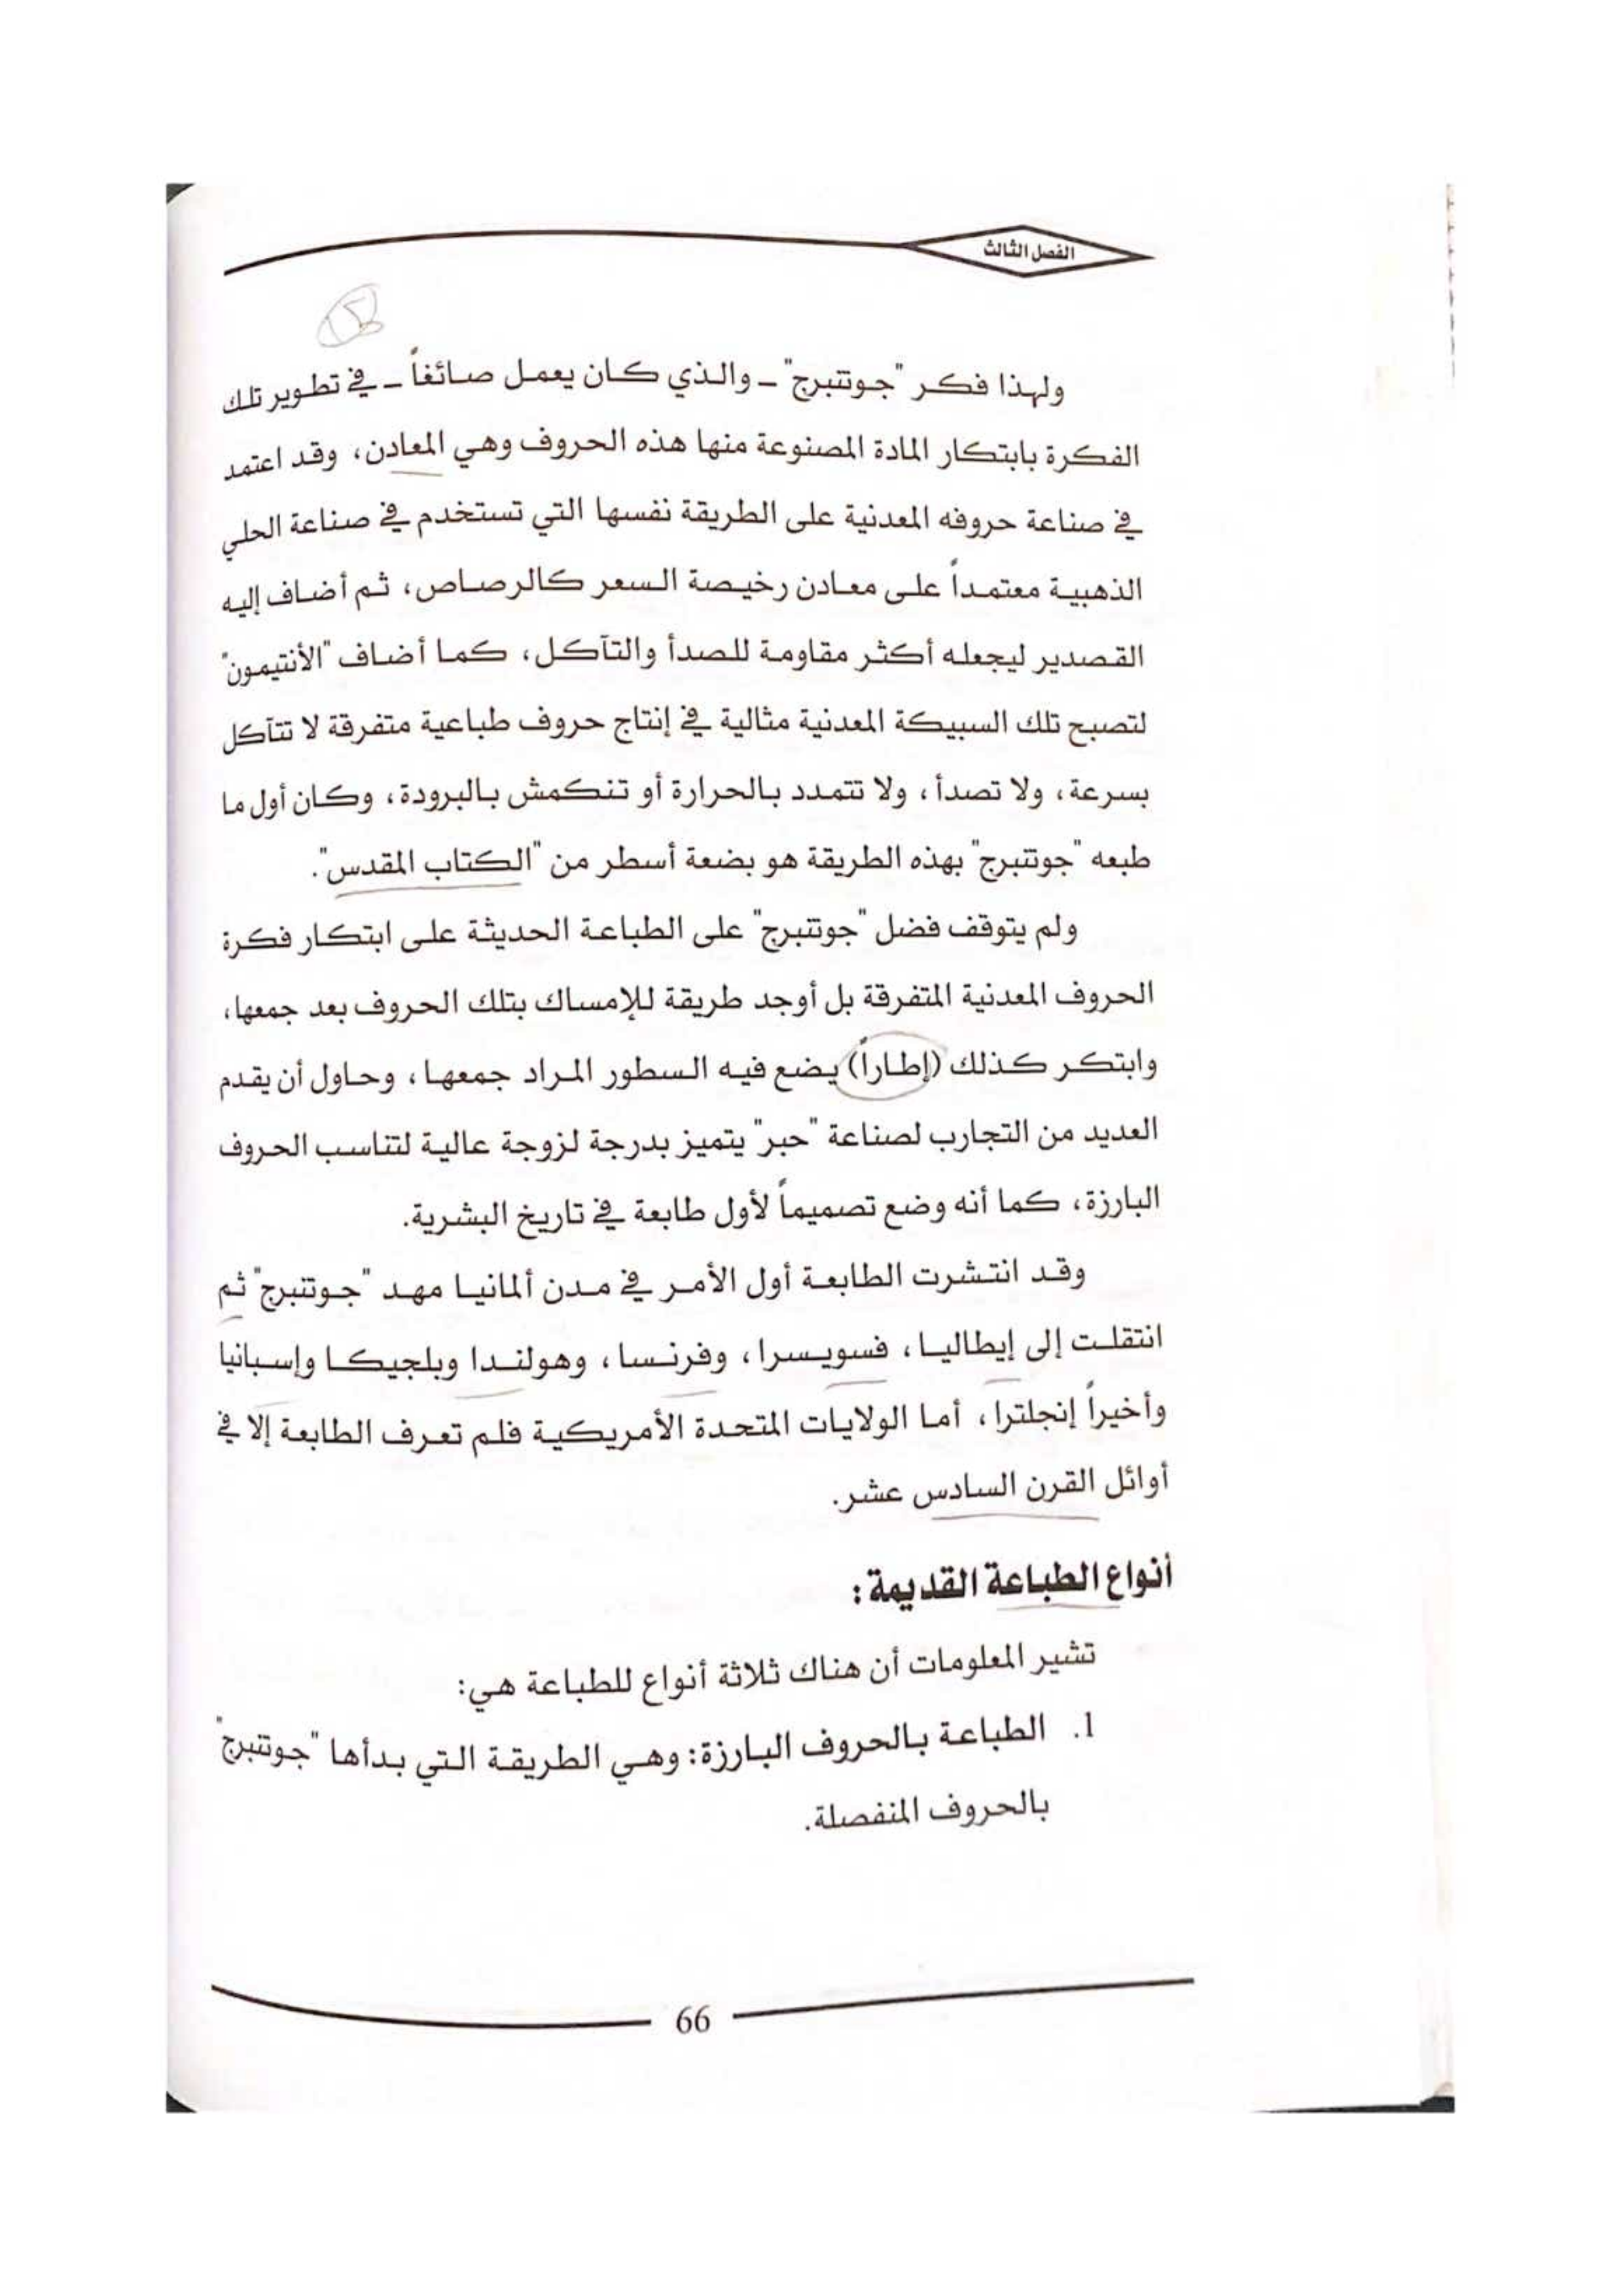 الفصل الثالث
ولهذا فكر "جوتنبرج" – والذي كان يعمل صائغاً – في تطوير تلك
الفكرة بابتكار المادة المصنوعة منها هذه الحروف وهي المعادن، وقد اعتمد
في صناعة حروفه المعدنية على الطريقة نفسها التي تستخدم في صناعة الحلي
الذهبية معتمداً على معادن رخيصة السعر كالرصاص، ثم أضاف إليه
القصدير ليجعله أكثر مقاومة للصدأ والتآكل، كما أضاف "الأنتيمون"
لتصبح تلك السبيكة المعدنية مثالية في إنتاج حروف طباعية متفرقة لا تتآكل
بسرعة، ولا تصدأ، ولا تتمدد بالحرارة أو تنكمش بالبرودة، وكان أول ما
طبعه "جوتنبرج" بهذه الطريقة هو بضعة أسطر من "الكتاب المقدس".
ولم يتوقف فضل "جوتنبرج" على الطباعة الحديثة على ابتكار فكرة
الحروف المعدنية المتفرقة بل أوجد طريقة للإمساك بتلك الحروف بعد جمعها،
وابتكر كذلك (إطاراً) يضع فيه السطور المراد جمعها، وحاول أن يقدم
العديد من التجارب لصناعة "حبر" يتميز بدرجة لزوجة عالية لتناسب الحروف
البارزة، كما أنه وضع تصميماً لأول طابعة في تاريخ البشرية.
وقد انتشرت الطابعة أول الأمر في مدن ألمانيا مهد "جوتنبرج" ثم
انتقلت إلى إيطاليا، فسويسرا، وفرنسا، وهولندا وبلجيكا وإسبانيا
وأخيراً إنجلترا، أما الولايات المتحدة الأمريكية فلم تعرف الطابعة إلا في
أوائل القرن السادس عشر.
أنواع الطباعة القديمة:
تشير المعلومات أن هناك ثلاثة أنواع للطباعة هي:
1. الطباعة بالحروف البارزة: وهي الطريقة التي بدأها "جوتنبرج"
بالحروف المنفصلة.
66